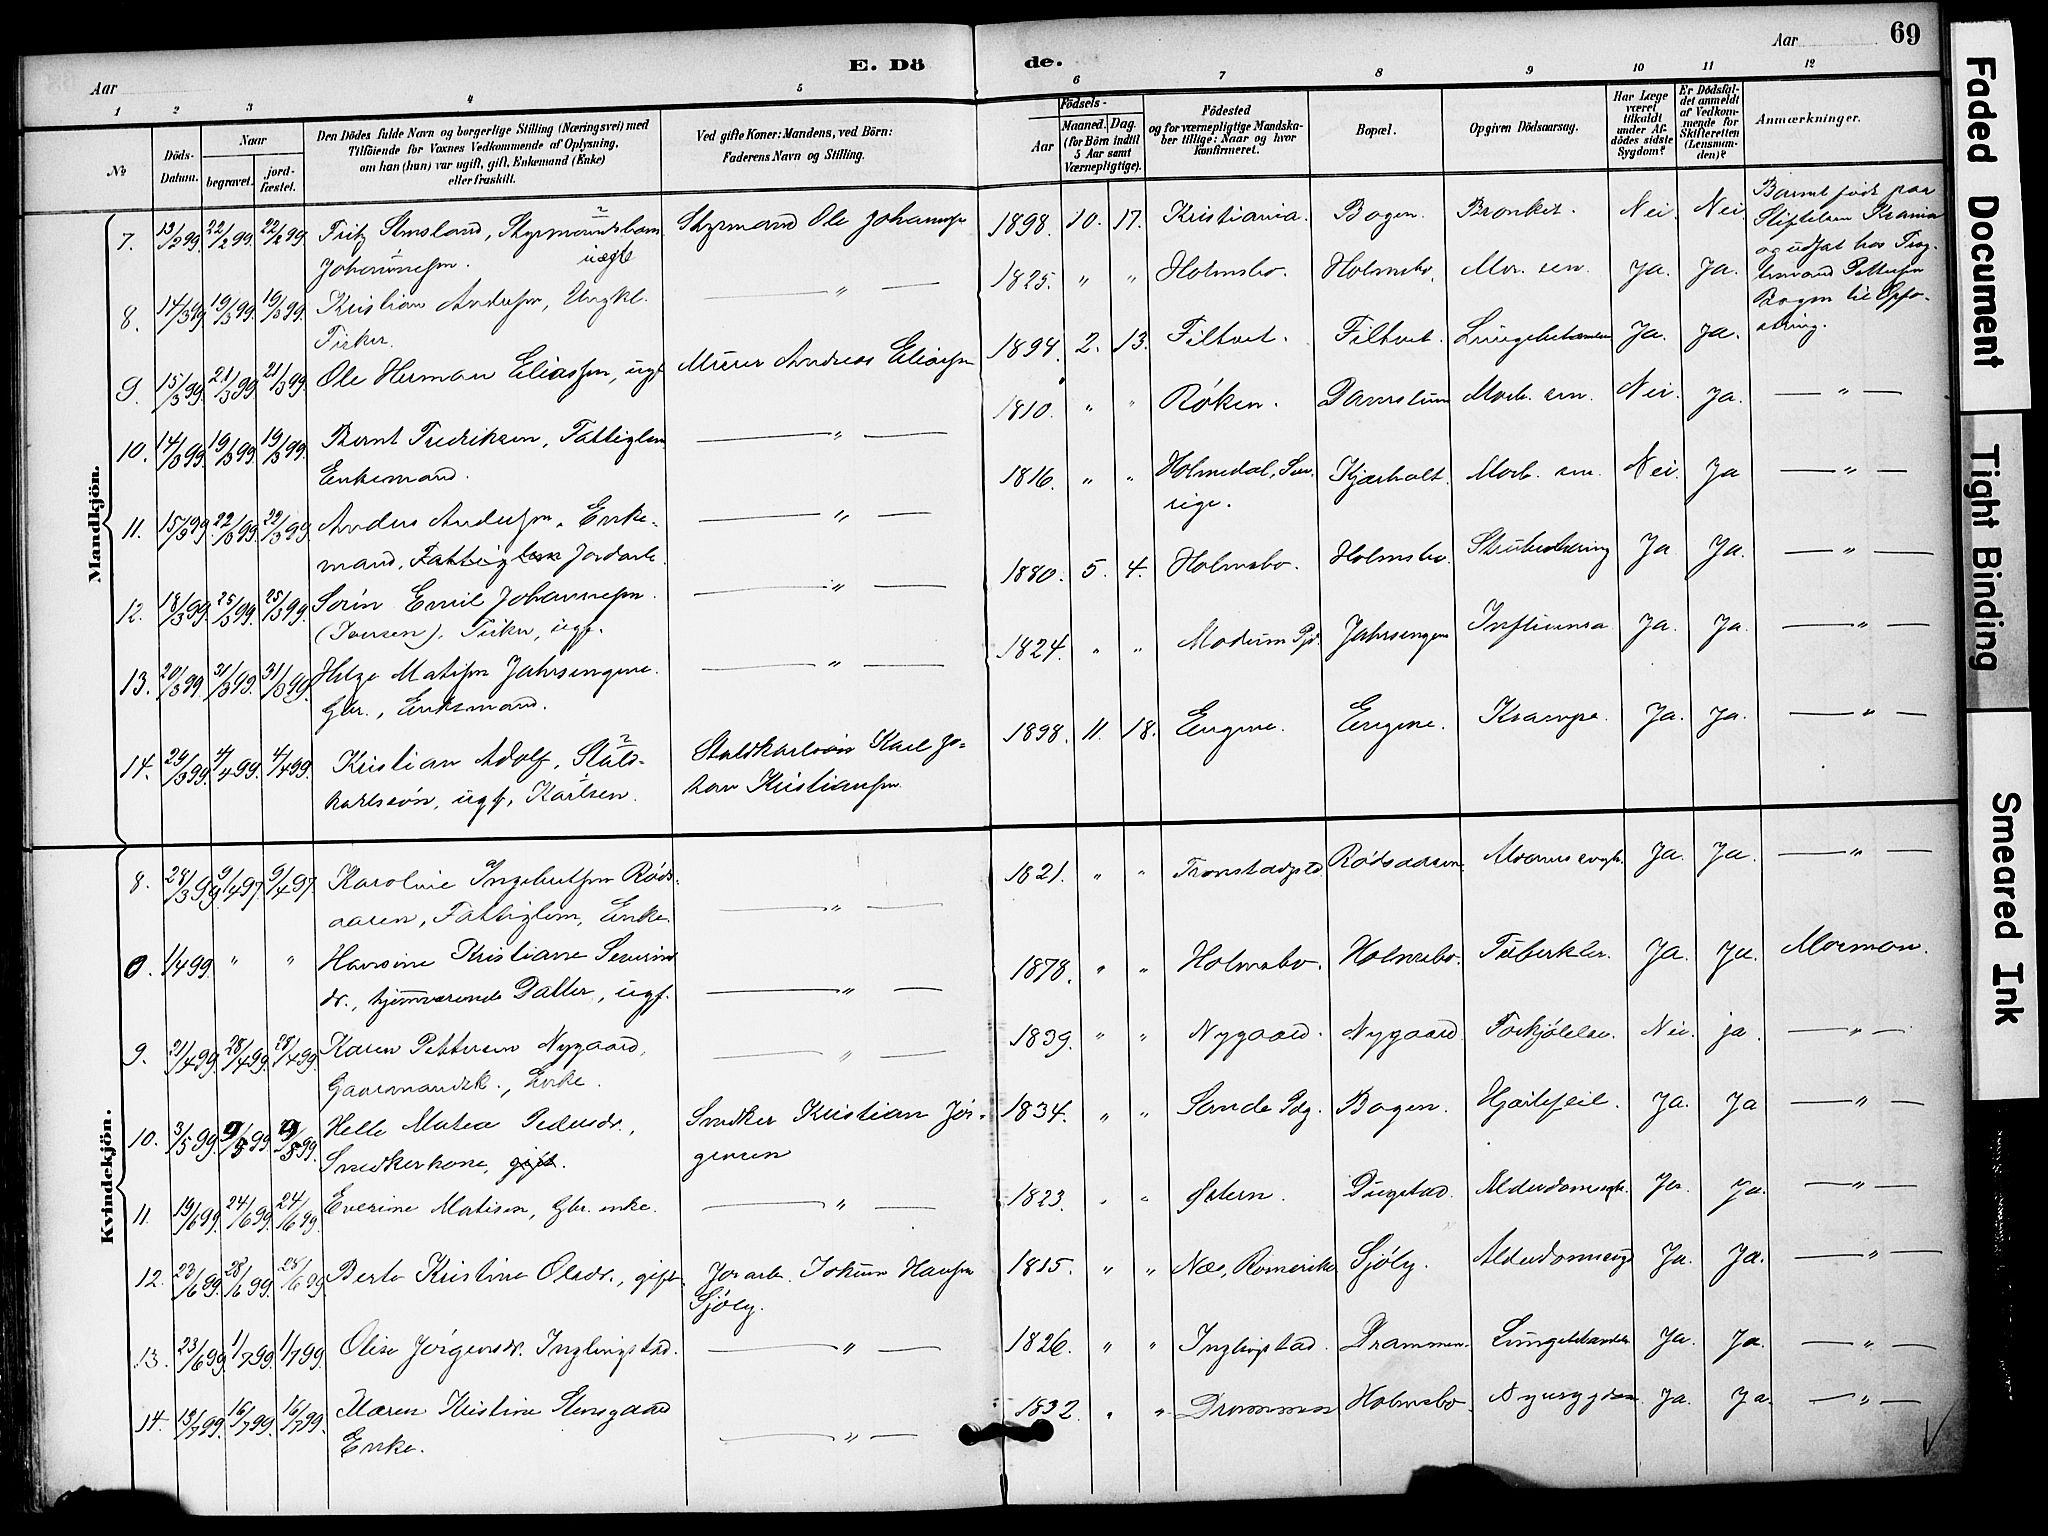 69
Aar
Aar
E. Dö de.
1 2 3 4 5 6 7 8 9 10 11 12
No
Döds-
Datum.
Naar
begravet.
jord-
fæstet.
Den Dödes fulde Navn og borgerlige Stilling (Næringsvei) med
Tilföiende for Voxnes Vedkommende af Oplysning,
om han (hun) var ugift, gift, Enkemand (Enke)
eller fraskilt.
Ved gifte Koner: Mandens, ved Børn:
Faderens Navn og Stilling.
Födsels-
Aar
Maaned. Dag.
(for Børn indtil
5 Aar samt
Værnepligtige).
Födested
og for værnepligtige Mandska-
ber tillige: Naar og hvor
konfirmeret.
Bopæl.
Opgiven Dödsaarsag.
Har Læge
været
tilkaldt
under Af-
dödes sidste
Sygdom?
Er Dödsfal-
det anmeldt
af Vedkom-
mende for
Skifteretten
(Lensman-
den)?
Anmærkninger.
Mandkjön.
7. 13/2 99. 22/2 99. 22/2 99. Fritz Styrmandsbarn Styrmand Ole Johannesen 1898. 10. 17. Kristiania. Bogen. Bronkit. Nei. Nei Barnet født paa
Johannesen. uægte Stiftelsen Krania
og udsat hos
Pettersen
Bogen til Opfo-
string.
8. 14/3 99. 19/3 99. 19/3 99. Kristian Andersen, Ungkl. — " — 1825. " " Holmsbo. Holmsbo. Mor. sen. Ja. Ja.
Fisker.
9. 15/3 99. 21/3 99. 21/3 99. Ole Herman Eliassen, ugf. Murer Andreas Eliassen 1894. 2. 13. Filtvet. Filtvet. Lungebetændelse Ja. Ja.
10. 14/3 99. 19/3 99. 19/3 99. Bernt Fredriksen, Fattiglem — " — 1810. " " Røken. Morb. sen. Nei. Ja. — " —
Enkemand.
11. 15/3 99. 22/3 99. 22/3 99. Anders Andersen, Enke- — " — 1816. " " Holmedal, Sve- Kjærholt. Morb. sen. Nei. Ja — " —
mand, Fattiglem Jordarb. rige.
12. 18/3 99. 25/3 99. 25/3 99. Sørin Emil Johannesen — " — 1880. 5. 4. Holmsbo. Holmsbo. Ja Ja. — " —
(Iversen), Fisker, ugf.
13. 20/3 99. 31/3 99. 31/3 99. Helge Matisen Jahrsengene. — " — 1824. " " Modum Pgd. Jahrsengene Influensa Ja. Ja. — " —
Gbr., Enkemand.
14. 29/3 99. 4/4 99. 4/4 99. Kristian Adolf, Stald- Staldkarlsøn Karl Jo- 1898. 11. 18. Engene. Engene. Krampe. Ja. Ja. — " —
karlsøn, ugf. Karlsen. han Kristiansen
Kvindekjön.
8. 28/3 99. 9/4 97. 9/4 97. Karoline Ingebretsen Røds- — " — 1821. " " Tronstad Rødsaasen Ja. Ja. — " —
aasen, Fattiglem, Enke.
0. 1/4 99. " " Hansine Kristiane Severins- — " — 1878. " " Holmsbo. Holmsbo. Tuberkler. Ja. Ja. Mormon.
dr., hjemværende Datter, ugf.
9. 21/4 99. 28/4 99. 28/4 99. Karen Pettersen Nygaard, — " — 1839. " " Nygaard. Nygaard. Forkjølelse. Nei ja. — " —
Gaarmandsk., Enke.
10. 3/5 99. 9/5 99. 9/5 99. Helle Matea Pedersdr., Snedker Kristian Jør- 1834. " " Sande Pdg. Bogen. Hjertefeil. Ja. Ja — " —
Snedkerkone, gift. gensen
11. 19/6 99. 24/6 99. 24/6 99. Everine Matisen, Gbr. enke. — " — 1823. " " Østern. Alderdomssvgh. Ja. Ja. — " —
12. 23/6 99. 28/6 99. 28/6 99 Berte Kristine Olsdr., gift. Jorarb. Jokum Hansen 1815. " " Næs, Romerike Sjøly. Ja. Ja. — " —
Sjøly.
13. 23/6 99. 1/7 99. 1/7 99. Olise Jørgensdr. Inglingstad. — " — 1826. " " Inglingstad. Drammen. Lungebetændelse Ja. Ja. — " —
14. 13/7 99. 16/7 99. 16/7 99. Maren Kristine Stensgaard — " — 1832. " " Drammen Holmsbo. Nyresygdom Ja. Ja. — " —
Enke.
Faded Document
Tight Binding
Smeared Ink